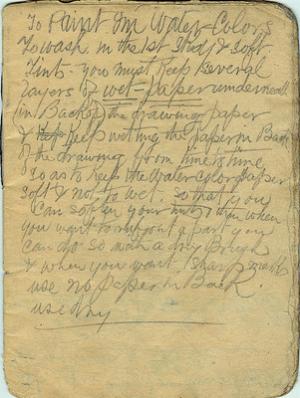 To Paint in Water-Colors
To wash in the 1st Shad & Soft
Tint - you must Keep Several
Layers of wet-paper underneath
(in Back of the drawing paper
& Keep wetting the paper in Back
of the drawing from time to time
So as to Keep the Water Color paper
Soft & not to wet. So that you
Can Soften your tints & then when
you want to out a part you
Can do So with a dry Brush
& when you want Sharp
use no paper in Back.
use dry